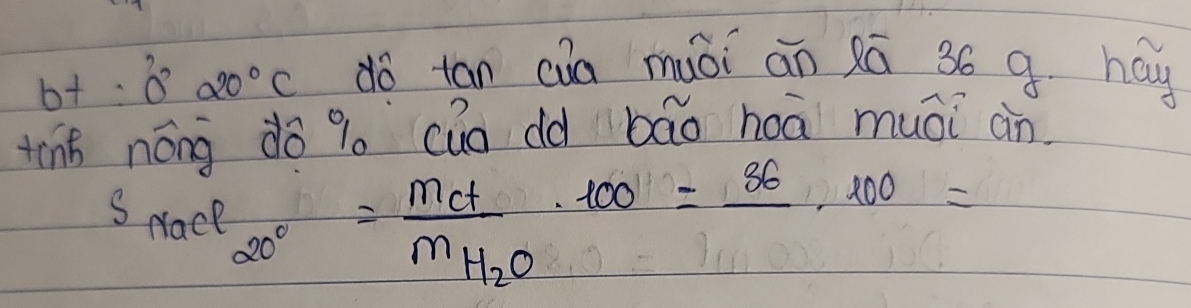 bt : Ở 20°C độ tan của muối ăn là 36 g. hãy
tính nồng độ % của dd bão hoà muối ăn.
S NaCl 20° = mct / mH₂O . 100 = 36 / . 100 =